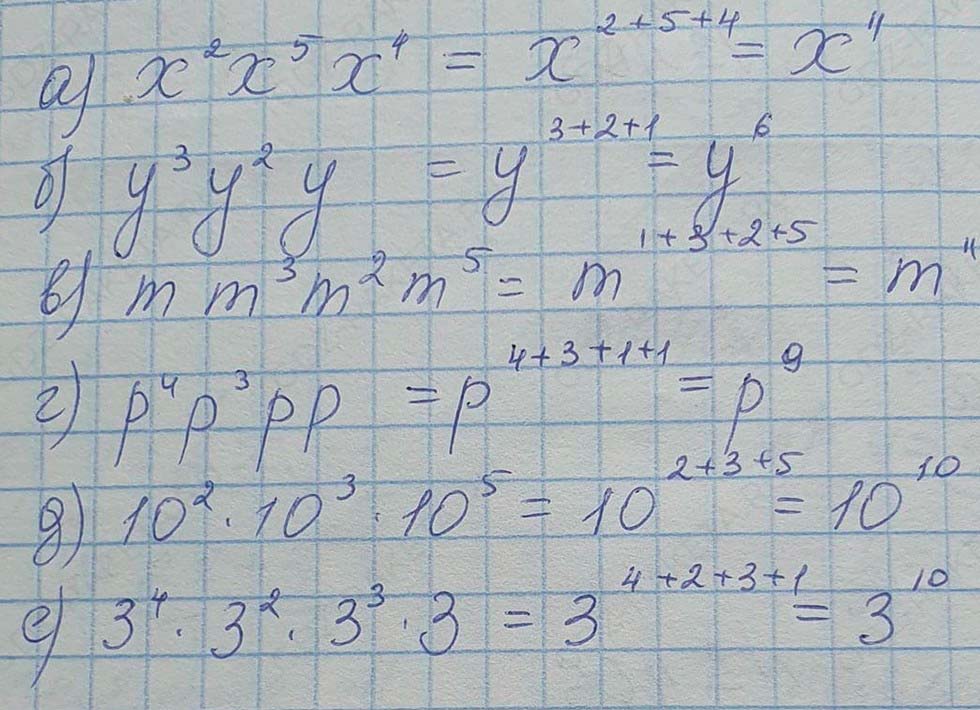 а) x²x⁵x⁴ = x²⁺⁵⁺⁴ = x¹¹
б) y³y²y = y³⁺²⁺¹ = y⁶
в) m m³m²m⁵ = m¹⁺³⁺²⁺⁵ = m¹¹
г) p⁴p³pp = p⁴⁺³⁺¹⁺¹ = p⁹
д) 10² · 10³ · 10⁵ = 10²⁺³⁺⁵ = 10¹⁰
е) 3⁴ · 3² · 3³ · 3 = 3⁴⁺²⁺³⁺¹ = 3¹⁰